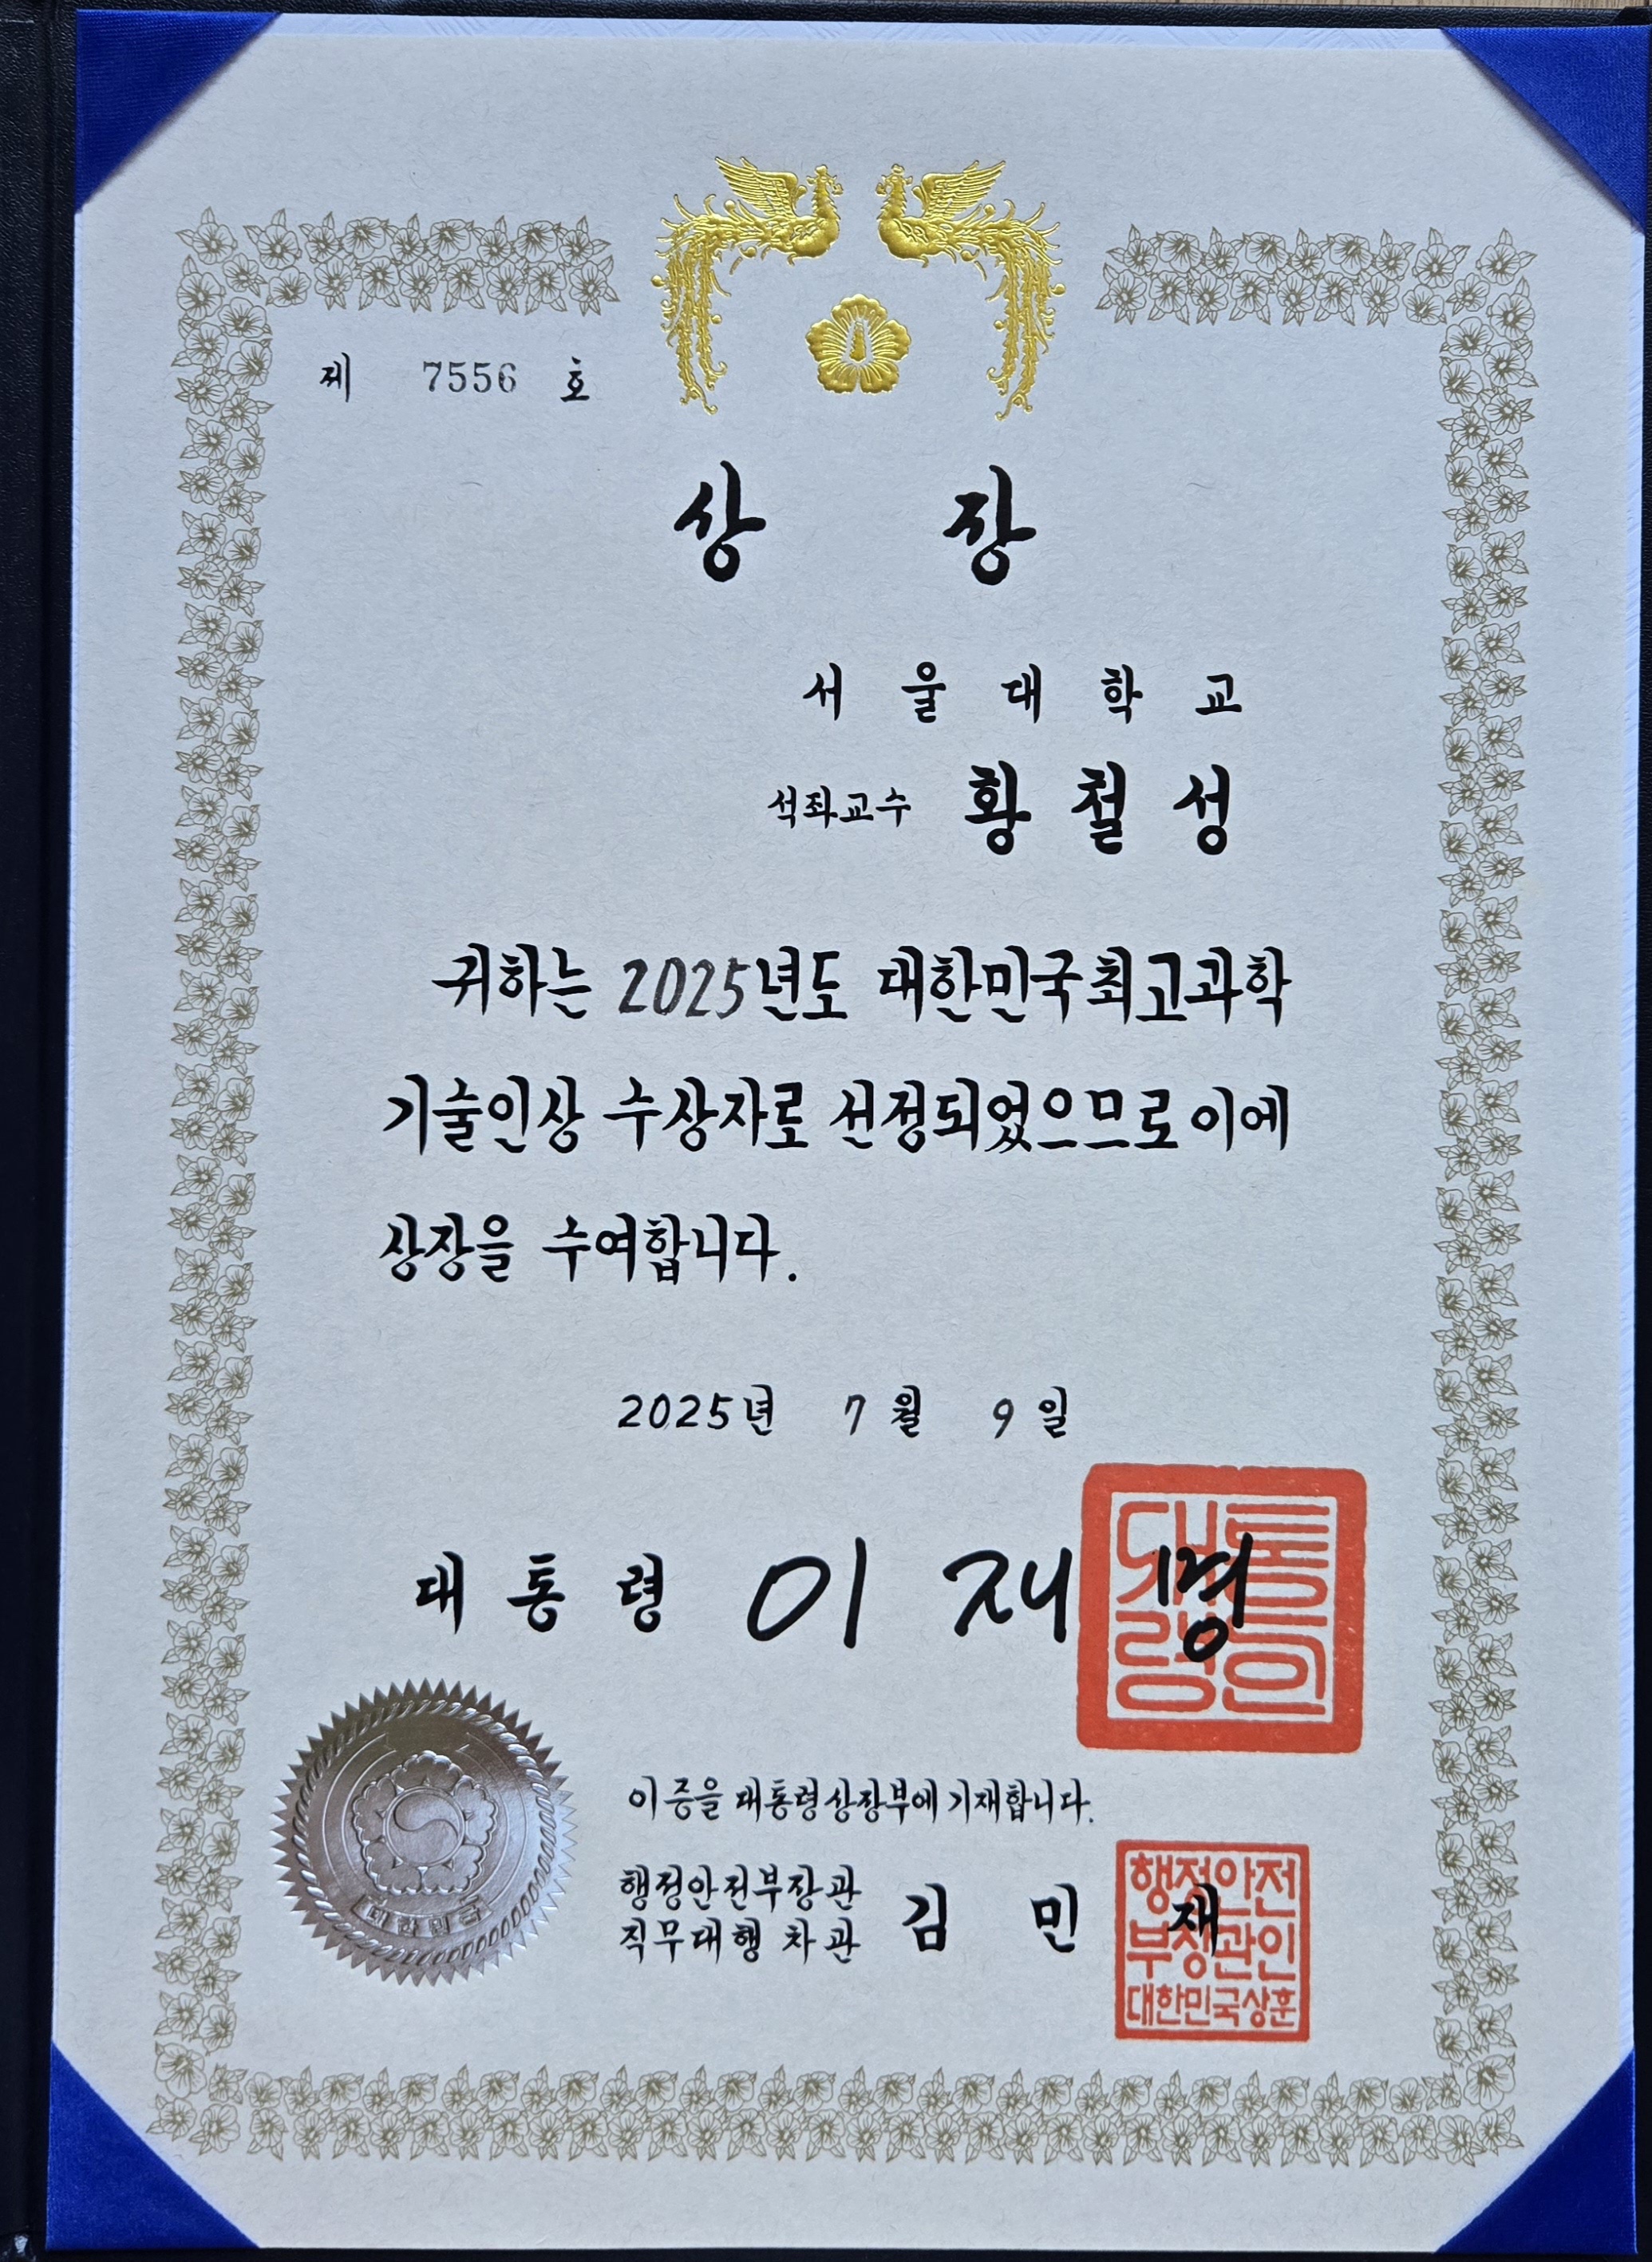 제 7556 호
상 장
서 울 대 학 교
석좌교수 황 철 성
귀하는 2025년도 대한민국최고과학
기술인상 수상자로 선정되었으므로 이에
상장을 수여합니다.
2025년 7월 9일
대 통 령 이 재 명
대통령의인
대한민국
이 증을 대통령상장부에 기재합니다.
행정안전부장관
직무대행 차관 김 민 재
행정안전
부장관인
대한민국상훈